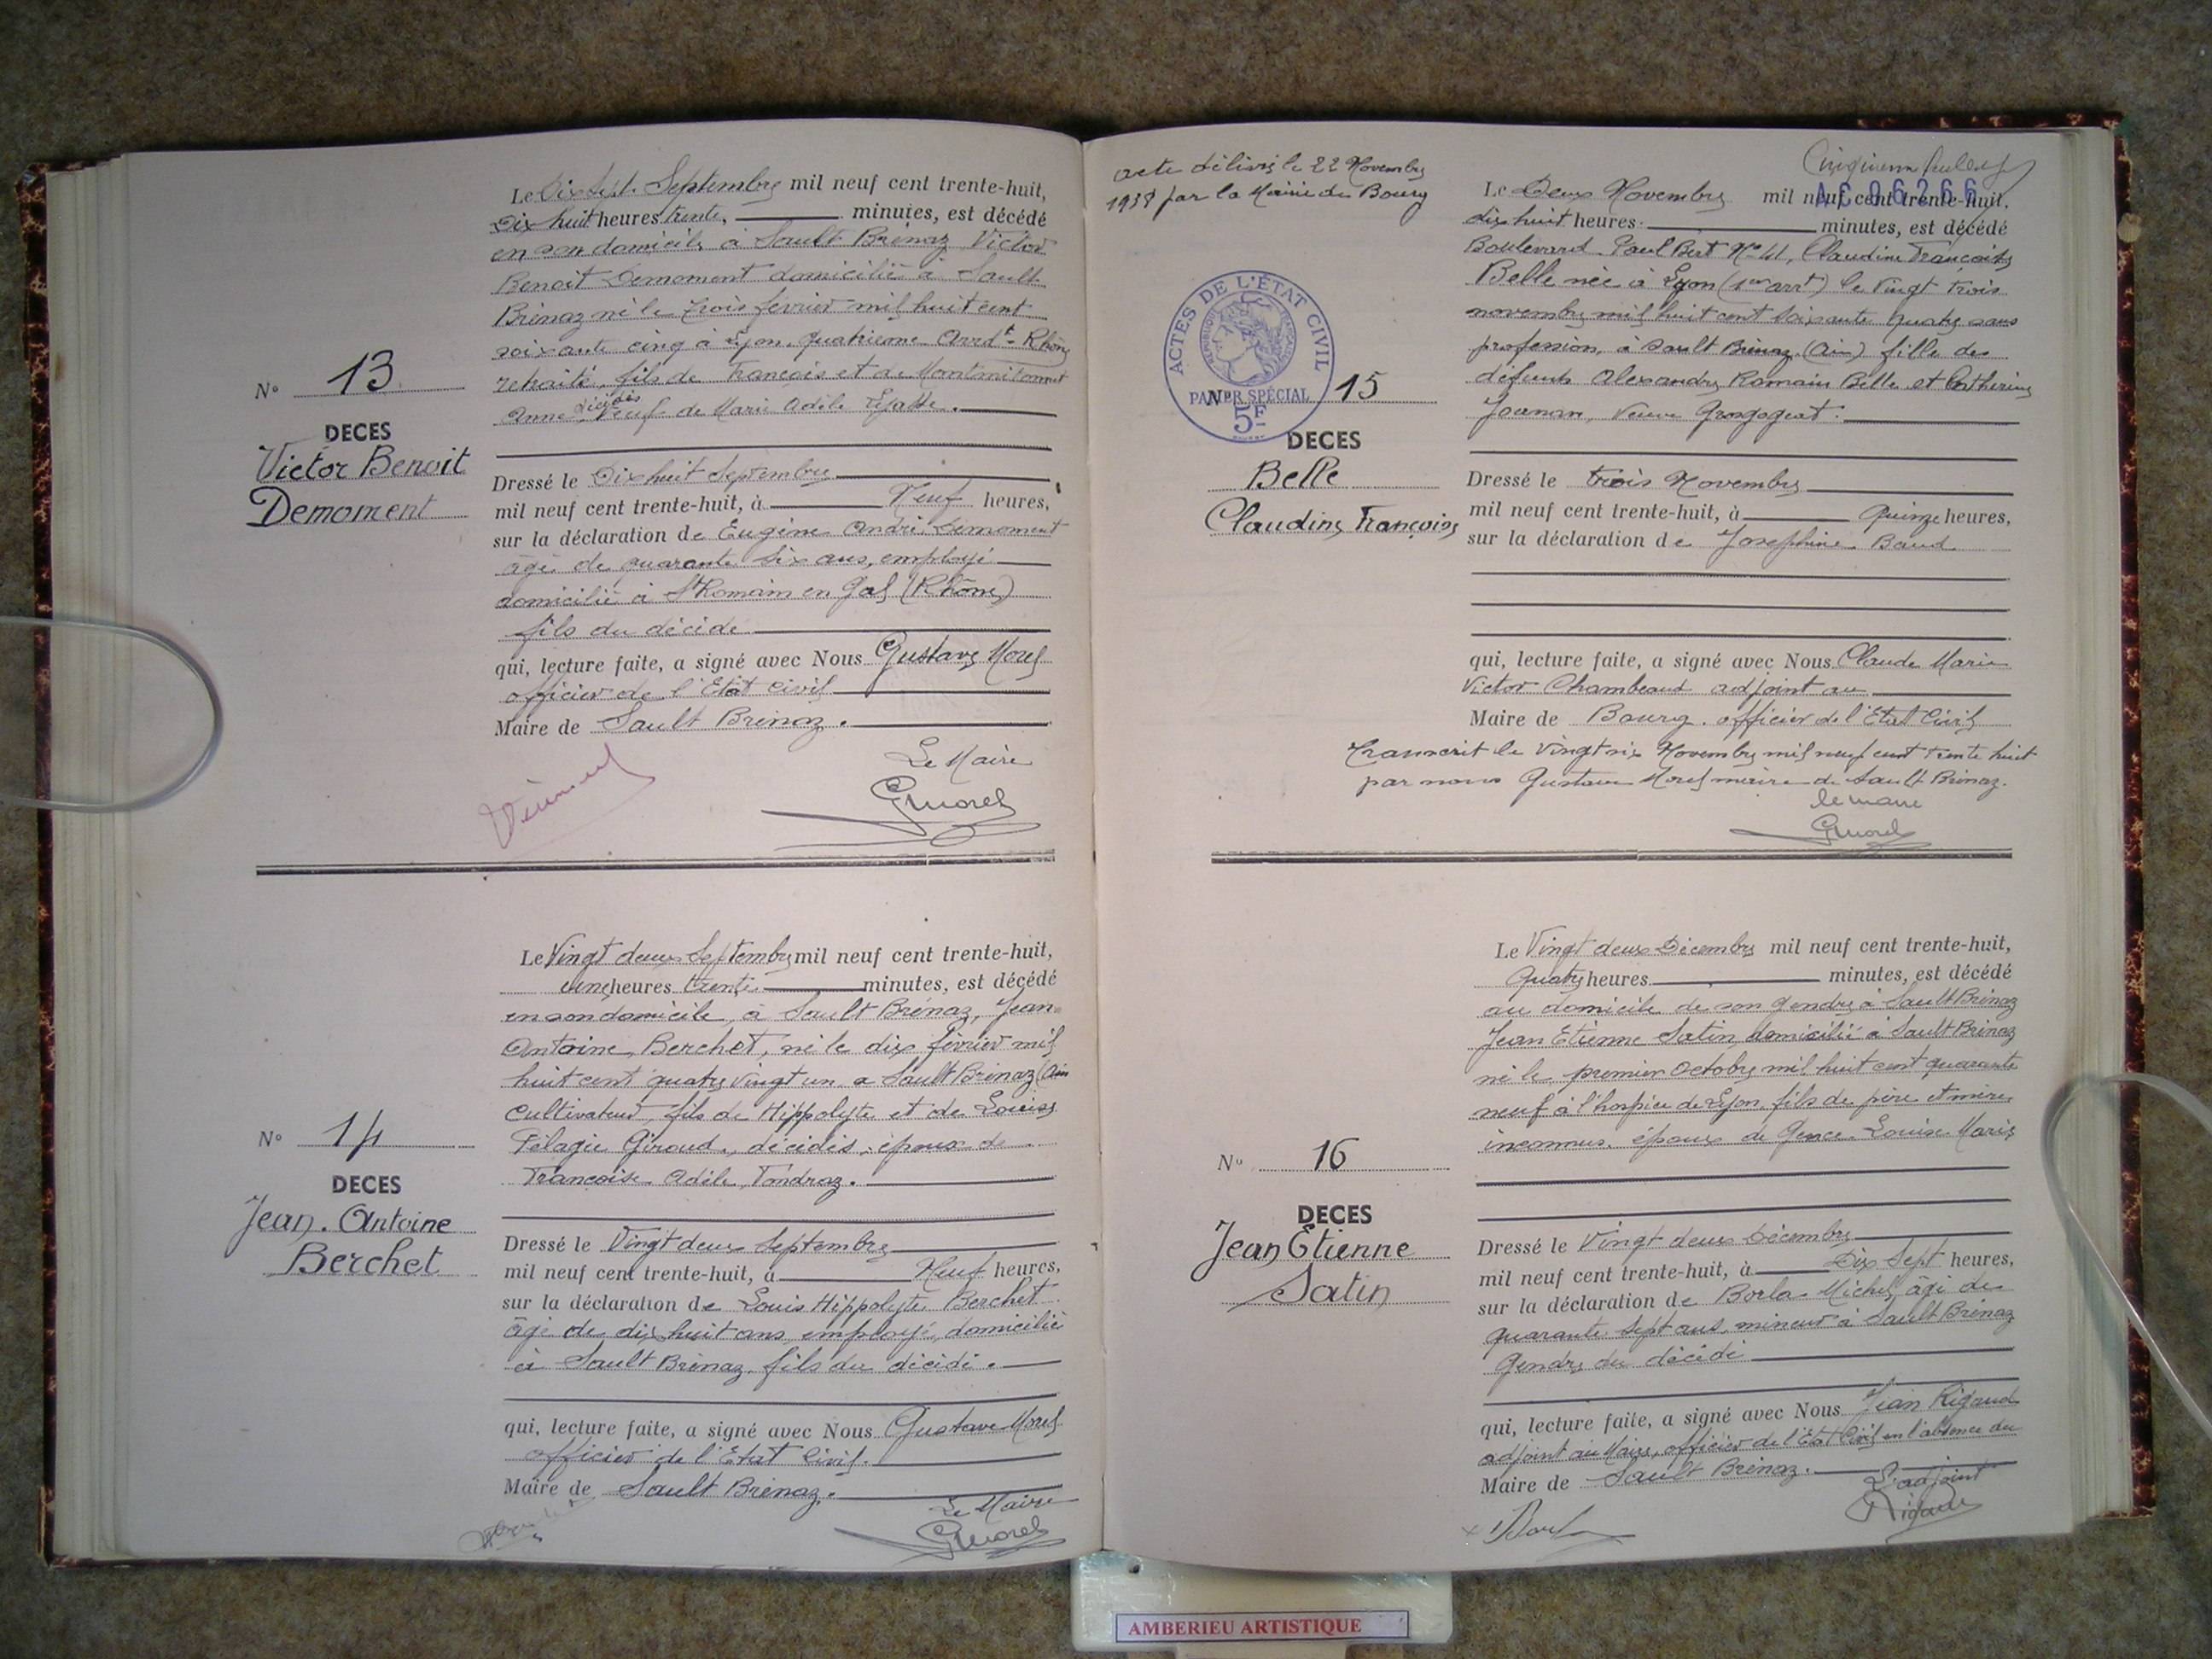 N° 13
DECES
Victor Benoit
Demoment
Le Dix sept Septembre mil neuf cent trente-huit,
Dix huit heures trente, minutes, est décédé
en son domicile à Sault Brénaz Victor
Benoit Demoment domicilié à Sault
Brénaz né le trois février mil huit cent
soixante cinq à Lyon, quatrième Arrdt Rhône
retraité, fils de François et de
Anne décédés Veuf de Marie Adèle
Dressé le Dix huit Septembre
mil neuf cent trente-huit, à Neuf heures,
sur la déclaration de Eugène André Demoment
âgé de quarante six ans, employé
domicilié à St Romain en Gal (Rhône)
fils du décédé
qui, lecture faite, a signé avec Nous Gustave Morel
officier de l'Etat Civil
Maire de Sault Brénaz.
Le Maire
GMorel
N° 14
DECES
Jean. Antoine
Berchet
Le Vingt deux Septembre mil neuf cent trente-huit,
une heures trente minutes, est décédé
en son domicile, à Sault Brénaz, Jean
Antoine, Berchet, né le dix février mil
huit cent quatre vingt un a Sault Brénaz (Ain
cultivateur, fils de Hippolyte et de Louise
Pélagie Giroud, décédés, époux de
Françoise Adèle, Tandraz.
Dressé le Vingt deux Septembre
mil neuf cent trente-huit, à Neuf heures,
sur la déclaration de Louis Hippolyte Berchet
âgé de dix huit ans employé, domicilié
à Sault Brénaz, fils du décédé.
qui, lecture faite, a signé avec Nous Gustave Morel
officier de l'Etat Civil.
Maire de Sault Brénaz.
Le Maire
GMorel
acte délivré le 22 Novembre
1938 par la Mairie de Bourg
ACTES DE L'ÉTAT CIVIL
RÉPUBLIQUE FRANÇAISE
PAPIER SPÉCIAL
5F
N° 15
DECES
Belle
Claudine Françoise
Le Deux Novembre mil neuf cent trente-huit,
dix huit heures minutes, est décédé
Boulevard Paul Bert N° 41, Claudine Françoise
Belle née à Lyon (1er arrt) le vingt trois
novembre mil huit cent soixante quatre sans
profession, à Sault Brénaz (Ain) fille de
défunts Alexandre Romain Belle et Catherine
Jounan, Veuve
Dressé le trois Novembre
mil neuf cent trente-huit, à Quinze heures,
sur la déclaration de Joséphine Baud
qui, lecture faite, a signé avec Nous Claude Marie
Victor Chambeaud adjoint au
Maire de Bourg, officier de l'Etat Civil
Transcrit le Vingt six Novembre mil neuf cent trente huit
par nous Gustave Morel maire de Sault Brénaz.
le maire
GMorel
N° 16
DECES
Jean Etienne
Satin
Le Vingt deux Décembre mil neuf cent trente-huit,
Quatre heures minutes, est décédé
au domicile de son gendre à Sault Brénaz
Jean Etienne Satin domicilié à Sault Brénaz
né le premier Octobre mil huit cent quarante
neuf à l'hospice de Lyon, fils de père et mère
inconnus, époux de Gence Louise Marie
Dressé le Vingt deux Décembre
mil neuf cent trente-huit, à Dix Sept heures,
sur la déclaration de Borla Michel, âgé de
quarante sept ans, mineur à Sault Brénaz
Gendre du décédé
qui, lecture faite, a signé avec Nous Jean Rigaud
adjoint au Maire, officier de l'Etat Civil en l'absence du
Maire de Sault Brénaz.
L'adjoint
Rigaud
AMBERIEU ARTISTIQUE